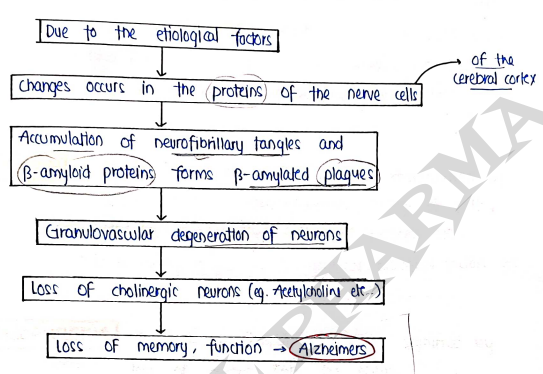 Due to the etiological factors
Changes occurs in the proteins of the nerve cells
of the
cerebral cortex
Accumulation of neurofibrillary tangles and
β-amyloid proteins forms β-amylated plaques
Granulovascular degeneration of neurons
Loss of cholinergic neurons (eg. Acetylcholine etc..)
Loss of memory, function → Alzheimers
PHARMA